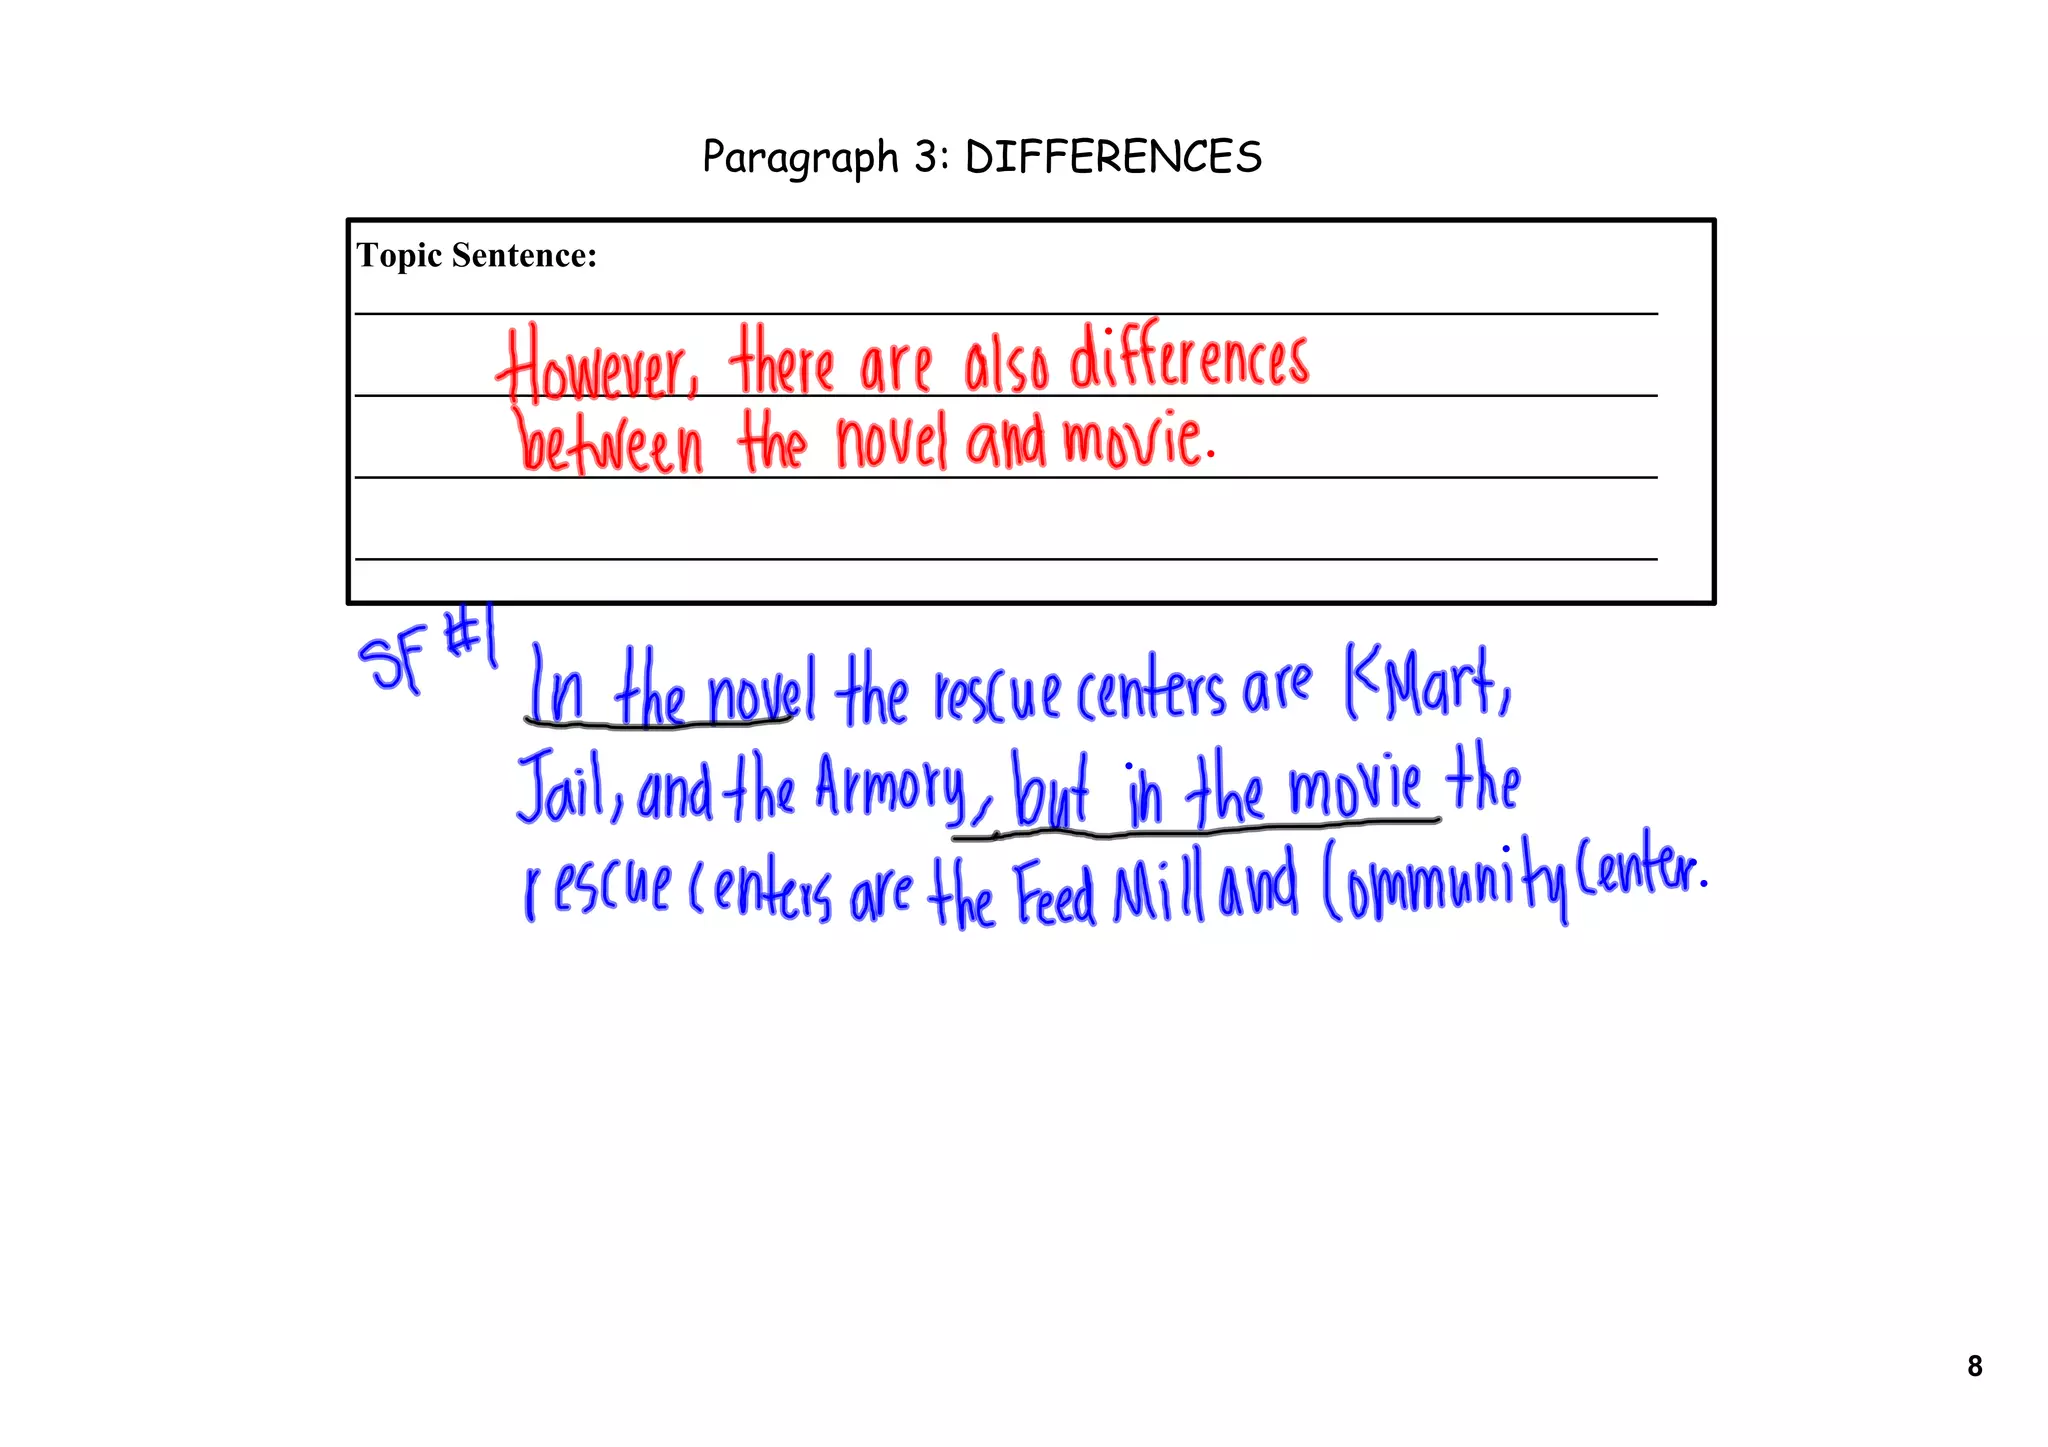 Paragraph 3: DIFFERENCES
Topic Sentence:
However, there are also differences
between the novel and movie.
SF #1
In the novel the rescue centers are KMart,
Jail, and the Armory, but in the movie the
rescue centers are the Feed Mill and Community Center.
8